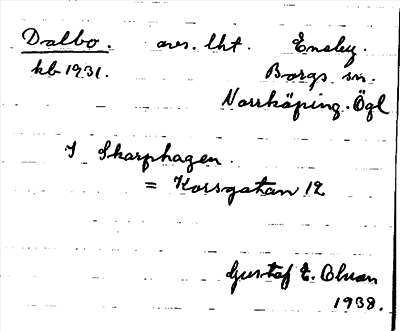 Dalbo. avs. lht. Ensby.
kb 1931. Borgs sn.
Norrköping. Ögl
I Skarphagen.
= Korsgatan 12
Gustaf E. Ohson
1938.